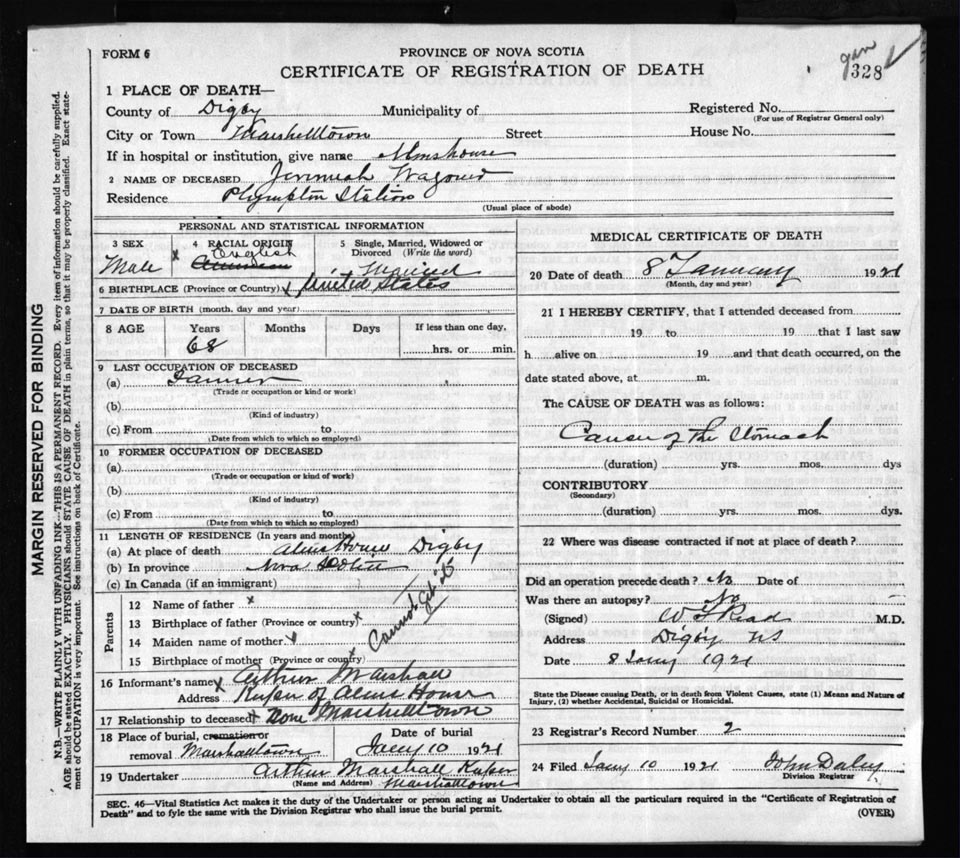 FORM 6
PROVINCE OF NOVA SCOTIA
CERTIFICATE OF REGISTRATION OF DEATH
Jan
328
1 PLACE OF DEATH—
County of Digby Municipality of Registered No.
(For use of Registrar General only)
City or Town Marshelltown Street House No.
If in hospital or institution, give name Almshouse
2 NAME OF DECEASED Jeremiah
Residence Plympton Station
(Usual place of abode)
PERSONAL AND STATISTICAL INFORMATION
3 SEX 4 RACIAL ORIGIN 5 Single, Married, Widowed or Divorced (Write the word)
Male x English Married
6 BIRTHPLACE (Province or Country) x United States
7 DATE OF BIRTH (month, day and year)
8 AGE Years Months Days If less than one day,
68 hrs. or min.
9 LAST OCCUPATION OF DECEASED
(a)
(Trade or occupation or kind of work)
(b)
(Kind of industry)
(c) From to
(Date from which to which so employed)
10 FORMER OCCUPATION OF DECEASED
(a)
(Trade or occupation or kind of work)
(b)
(Kind of industry)
(c) From to
(Date from which to which so employed)
11 LENGTH OF RESIDENCE (In years and months)
(a) At place of death Alms House Digby
(b) In province Nova Scotia
(c) In Canada (if an immigrant)
Parents
12 Name of father x
13 Birthplace of father (Province or country) x
14 Maiden name of mother
15 Birthplace of mother (Province or country) x
Cannot get it
16 Informant's name x Arthur Marshall
Address Keeper of Alms House
17 Relationship to deceased x None Marshelltown
18 Place of burial, cremation or removal Marshalltown Date of burial Jany 10 1921
19 Undertaker Arthur Marshall Keeper
(Name and Address) Marshalltown
MEDICAL CERTIFICATE OF DEATH
20 Date of death 8 January 1921
(Month, day and year)
21 I HEREBY CERTIFY, that I attended deceased from
19 to 19 that I last saw
h alive on 19 and that death occurred, on the
date stated above, at m.
The CAUSE OF DEATH was as follows:
Cancer of the Stomach
(duration) yrs. mos. dys
CONTRIBUTORY
(Secondary)
(duration) yrs. mos. dys.
22 Where was disease contracted if not at place of death?
Did an operation precede death? No Date of
Was there an autopsy? No
(Signed) Read M.D.
Address Digby NS
Date 8 Jany 1921
State the Disease causing Death, or in death from Violent Causes, state (1) Means and Nature of
Injury, (2) whether Accidental, Suicidal or Homicidal.
23 Registrar's Record Number 2
24 Filed Jany 10 1921 John Daley
Division Registrar
SEC. 46—Vital Statistics Act makes it the duty of the Undertaker or person acting as Undertaker to obtain all the particulars required in the "Certificate of Registration of
Death" and to fyle the same with the Division Registrar who shall issue the burial permit.
(OVER)
MARGIN RESERVED FOR BINDING
N.B.—WRITE PLAINLY WITH UNFADING INK—THIS IS A PERMANENT RECORD. Every item of information should be carefully supplied.
AGE should be stated EXACTLY. PHYSICIANS should STATE CAUSE OF DEATH in plain terms, so that it may be properly classified. Exact state-
ment of OCCUPATION is very important. See instructions on back of Certificate.